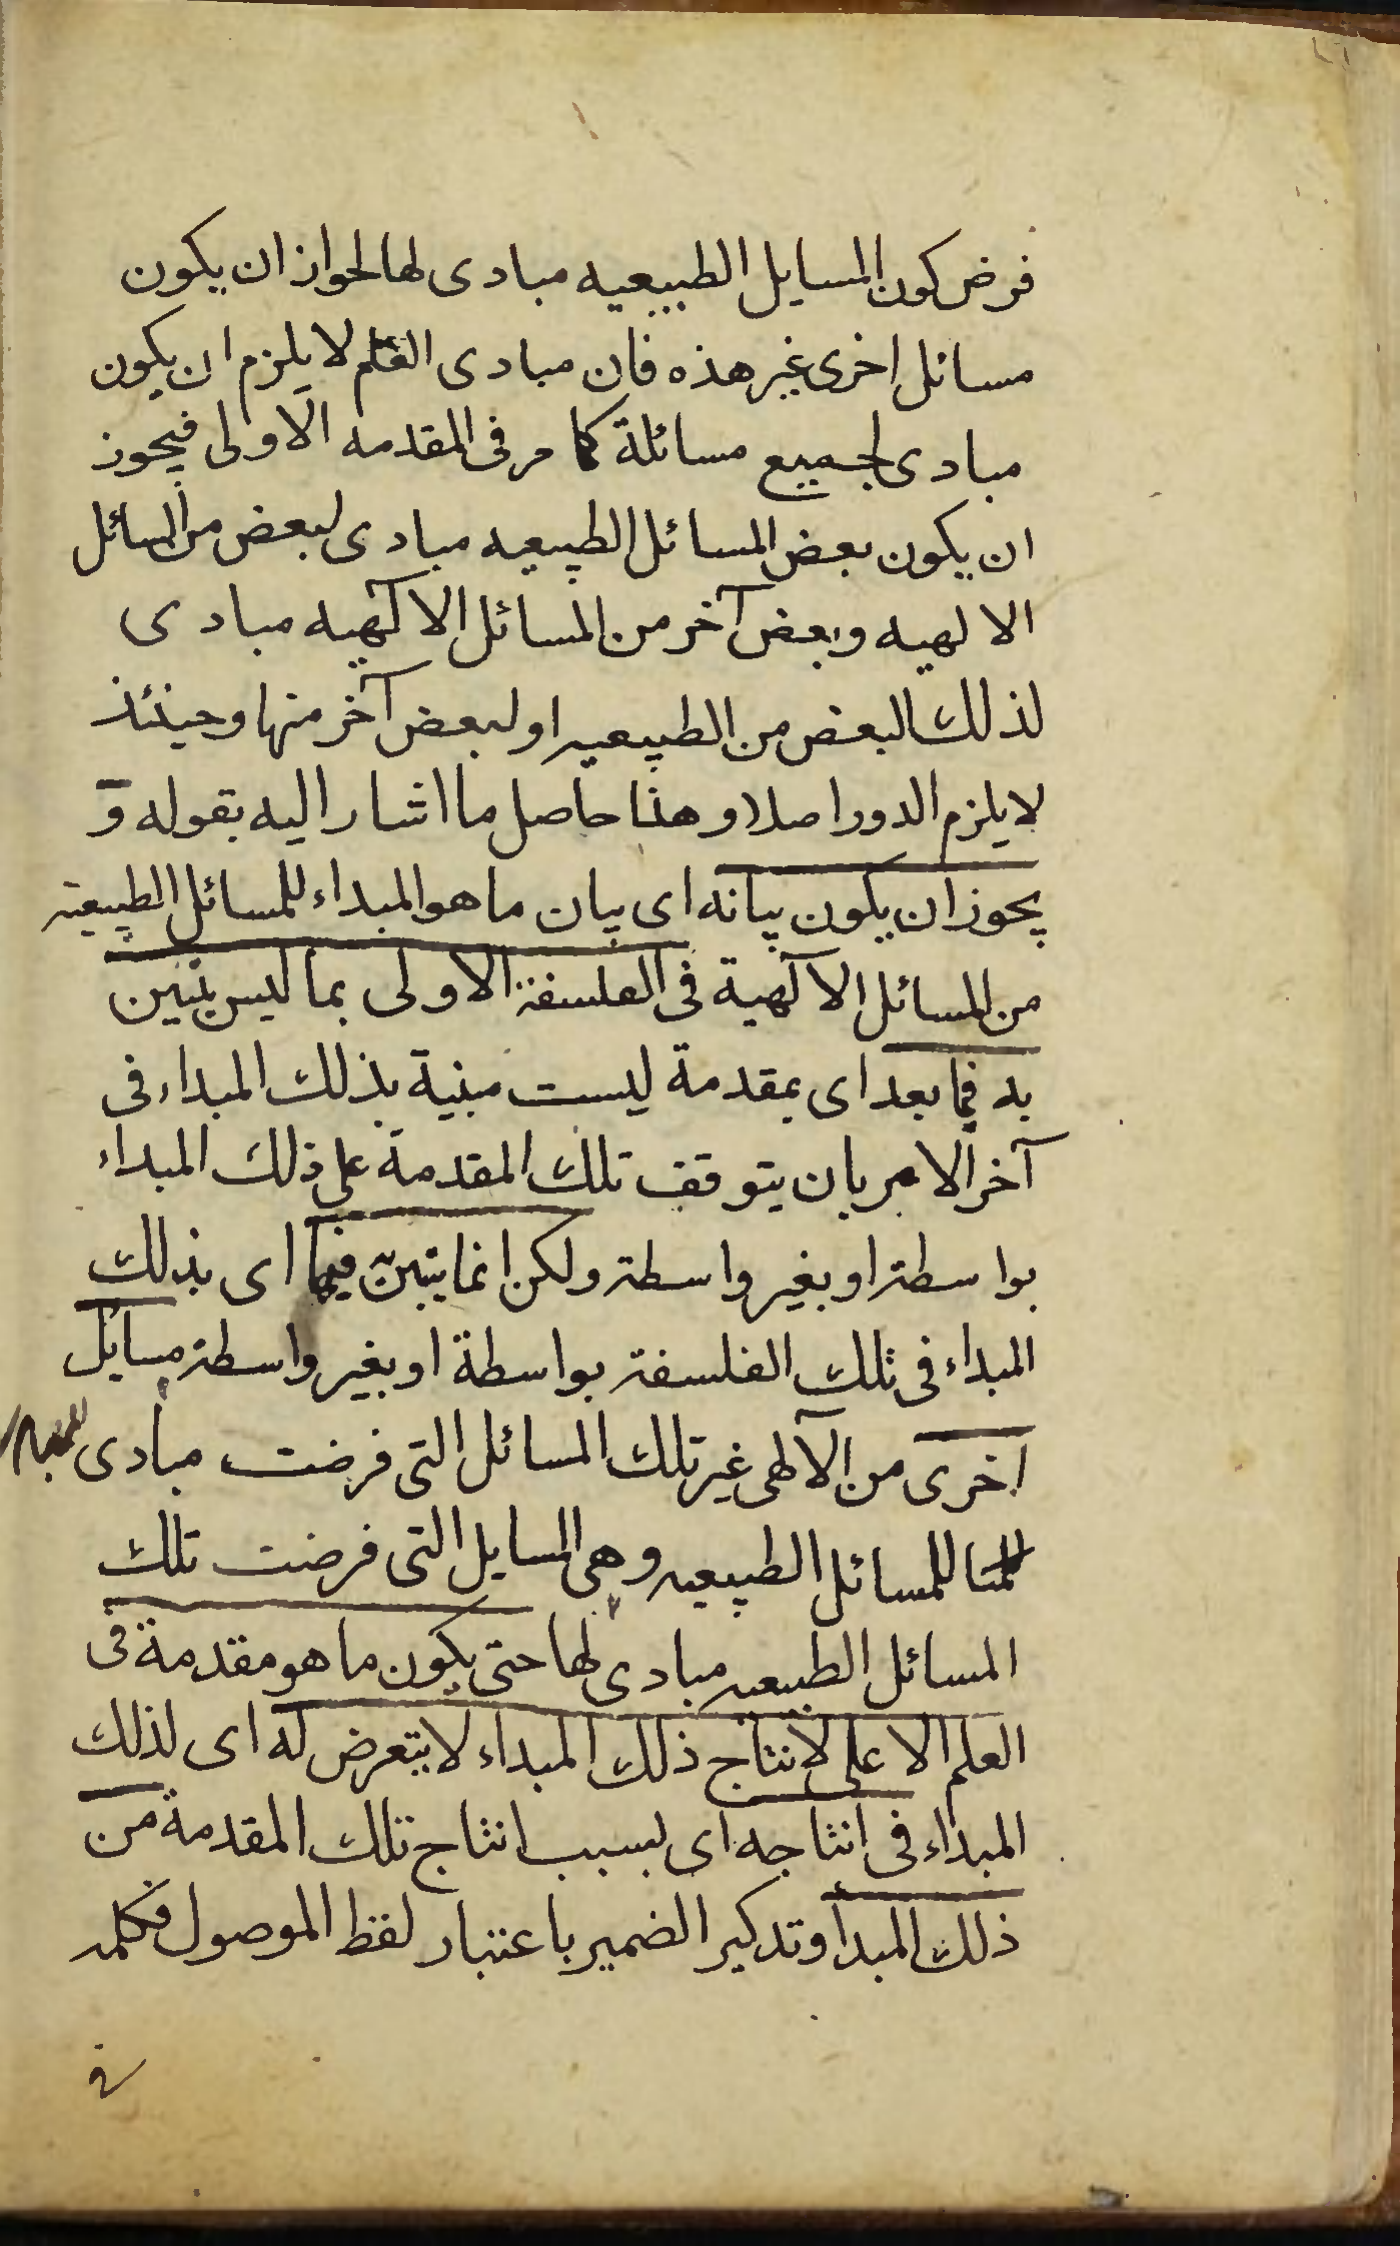 فرض كون المسايل الطبيعيه مبادى لها لجواز ان يكون
مسائل اخرى غير هذه فان مبادى العلم لا يلزم ان يكون
مبادى لجميع مسائلة كما مر فى المقدمه الاولى فيجوز
ان يكون بعض المسائل الطبيعيه مبادى لبعض من المسائل
الالهيه وبعض آخر من المسائل الآلهيه مبادى
لذلك البعض من الطبيعيه او لبعض آخر منها وحينئذ
لا يلزم الدور اصلا و هذا حاصل ما اشار اليه بقوله و
يجوز ان يكون بيانه اى بيان ما هو المبداء للمسائل الطبيعية
من المسائل الآلهية فى الفلسفة الاولى بما ليس بتبين
به فيما بعد اى بمقدمة ليست مبنية بذلك المبداء فى
آخر الامر بان يتوقف تلك المقدمة على ذلك المبداء
بواسطة او بغير واسطة ولكن انما يتبين به فيها اى بذلك
المبداء فى تلك الفلسفة بواسطة او بغير واسطة مسايل
اخرى من الآلهى غير تلك المسائل التى فرضت مبادى
للمسائل الطبيعيه وهى المسايل التى فرضت تلك
المسائل الطبيعيه مبادى لها حتى يكون ما هو مقدمة فى
العلم الاعلى لانتاج ذلك المبداء لا يتعرض له اى لذلك
المبداء فى انتاجه اى بسبب انتاج تلك المقدمة من
ذلك المبدأ وتدكير الضمير باعتبار لفظ الموصول فكلمه